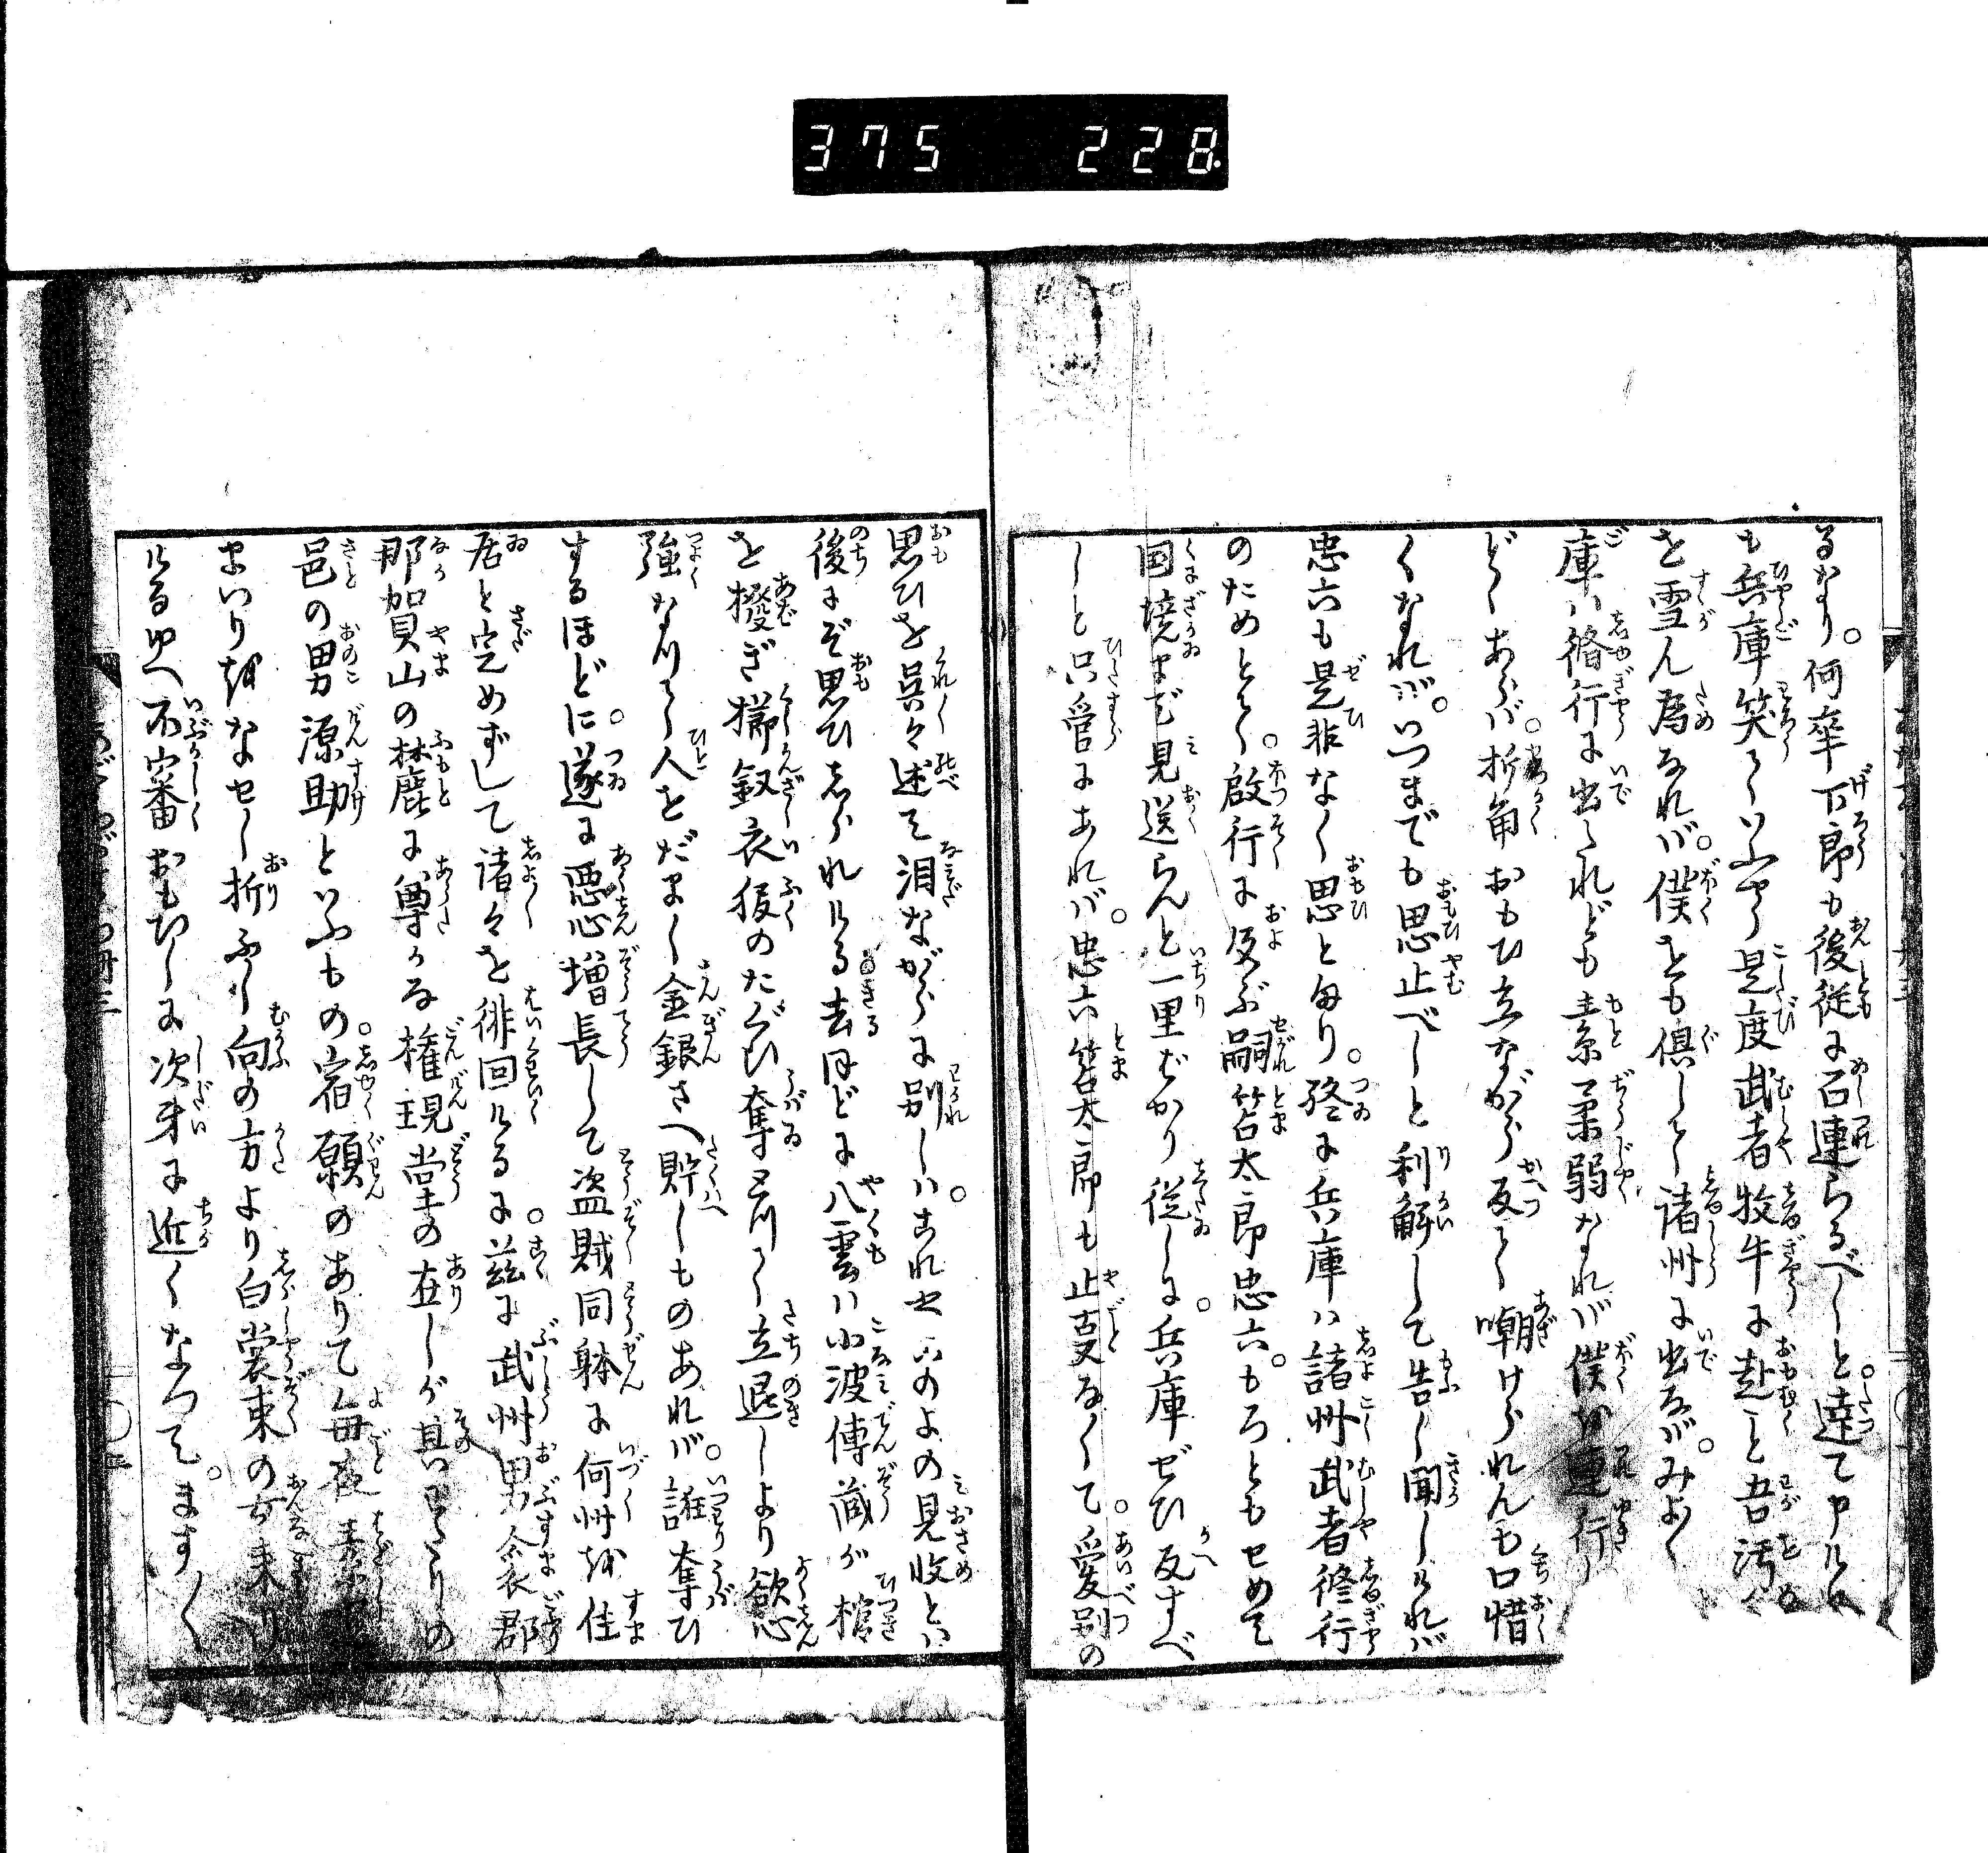 375 228
るなり。何卒下郎も後従に召連らるべしと。達て申ける
も兵庫笑ていふやう是度武者修牛に赴こと吾汚
を雪ん為なれバ。僕をも倶して諸州に出なバ。みよ
庫ハ修行に出たれども素柔弱なれバ僕を連行
どゝあらバ。折角おもひ立ながら反て嘲けられんも口惜
くなれバ。いつまでも思止べしと利解して告し聞しけれバ
忠六も是非なく思とまり。終に兵庫ハ諸州武者修行
のためとて。啟行に及ぶ嗣笘太郎忠六。もろともせめて
国境まで見送らんと一里ばかり従しに。兵庫ぜひ反すべ
しと只管にあれバ。忠六笘太郎も止事なくて。愛別の
思ひを呉々述て泪ながらに別しハ。これせいのよの見收とハ
後にぞ思ひしられける去ほどに八雲ハ小波傳蔵が棺
を撥ぎ櫛釵衣服のたぐひ奪取て立退しより欲心
強なりて人をだまし金銀さへ貯しものあれバ。誑奪ひ
するほどに。遂に悪心増長して盗賊同躰に何州を住
居と定めずして諸々を徘回けるに。茲に武州男衾郡
那賀山の麓に尊かな権現堂の在しが其わたりの
邑の男源助といふもの。宿願のありて毎夜
まいりをなせし折ふし向の方より白裳束の女来り
けるゆへ不審おもひしに次第に近くなつて。ます〳〵